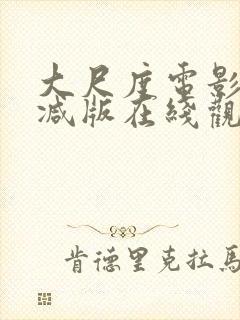 大尺度電影
減版在綫觀
肯德里克拉馬